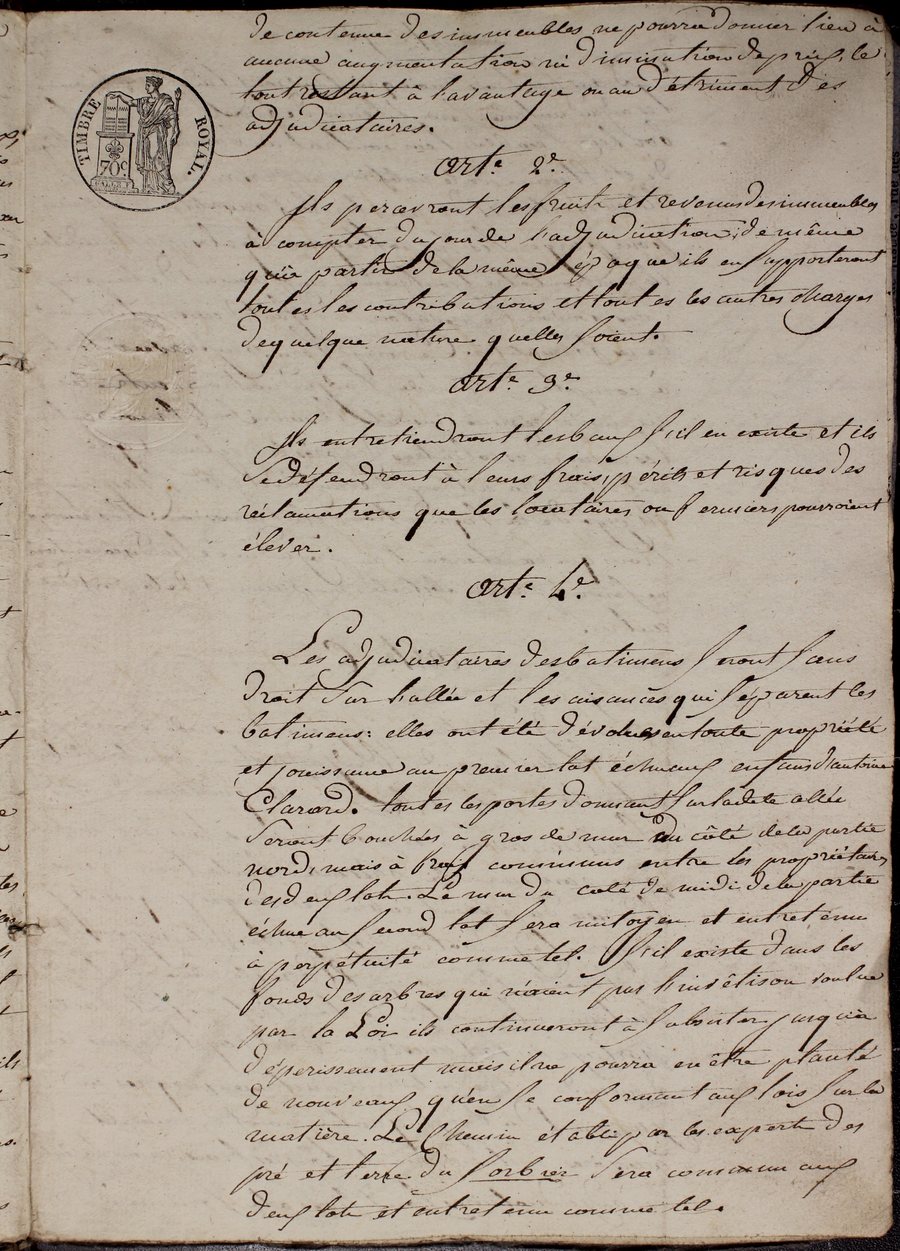 TIMBRE ROYAL.
70c.
de contenue des immeubles ne pourra donner lieu à
aucune augmentation ni diminution de prix, le
tout restant à l'avantage ou au détriment des
adjudicataires.
arte. 2e.
Ils percevront les fruits et revenus des immeubles
à compter du jour de l'adjudication; de même
qu'à partir de la même époque ils en supporteront
toutes les contributions et toutes les autres charges
de quelque nature quelles soient.
arte. 3e.
Ils entretiendront les baux s'il en existe et ils
se défendront à leurs frais, périls et risques des
réclamations que les locataires ou fermiers pourroient
élever.
arte. 4e.
Les adjudicataires des batimens seront sans
droit sur l'allée et les aisances qui séparent les
batimens: elles ont été dévolues en toute propriété
et jouissance au premier lot échu aux enfans d'antoine
Clarard. toutes les portes donnant sur ladete allée
seront bouchées à gros de mur du côté de la partie
nord, mais à frais communs entre les propriétaires
des deux lots. Le mur du coté de midi de la partie
échue au second lot sera mitoyen et entretenu
à perpétuité comme tel. S'il existe dans les
fonds des arbres qui n'aient pas l'invêtison voulue
par la Loi ils continueront à subsister jusqu'à
dépérissement mais il ne pourra en être planté
de nouveaux qu'en se conformant aux lois sur la
matière. Le Chemin établi par les experts des
pré et terre du Sorbier sera commun aux
deux lots et entretenu comme tel.